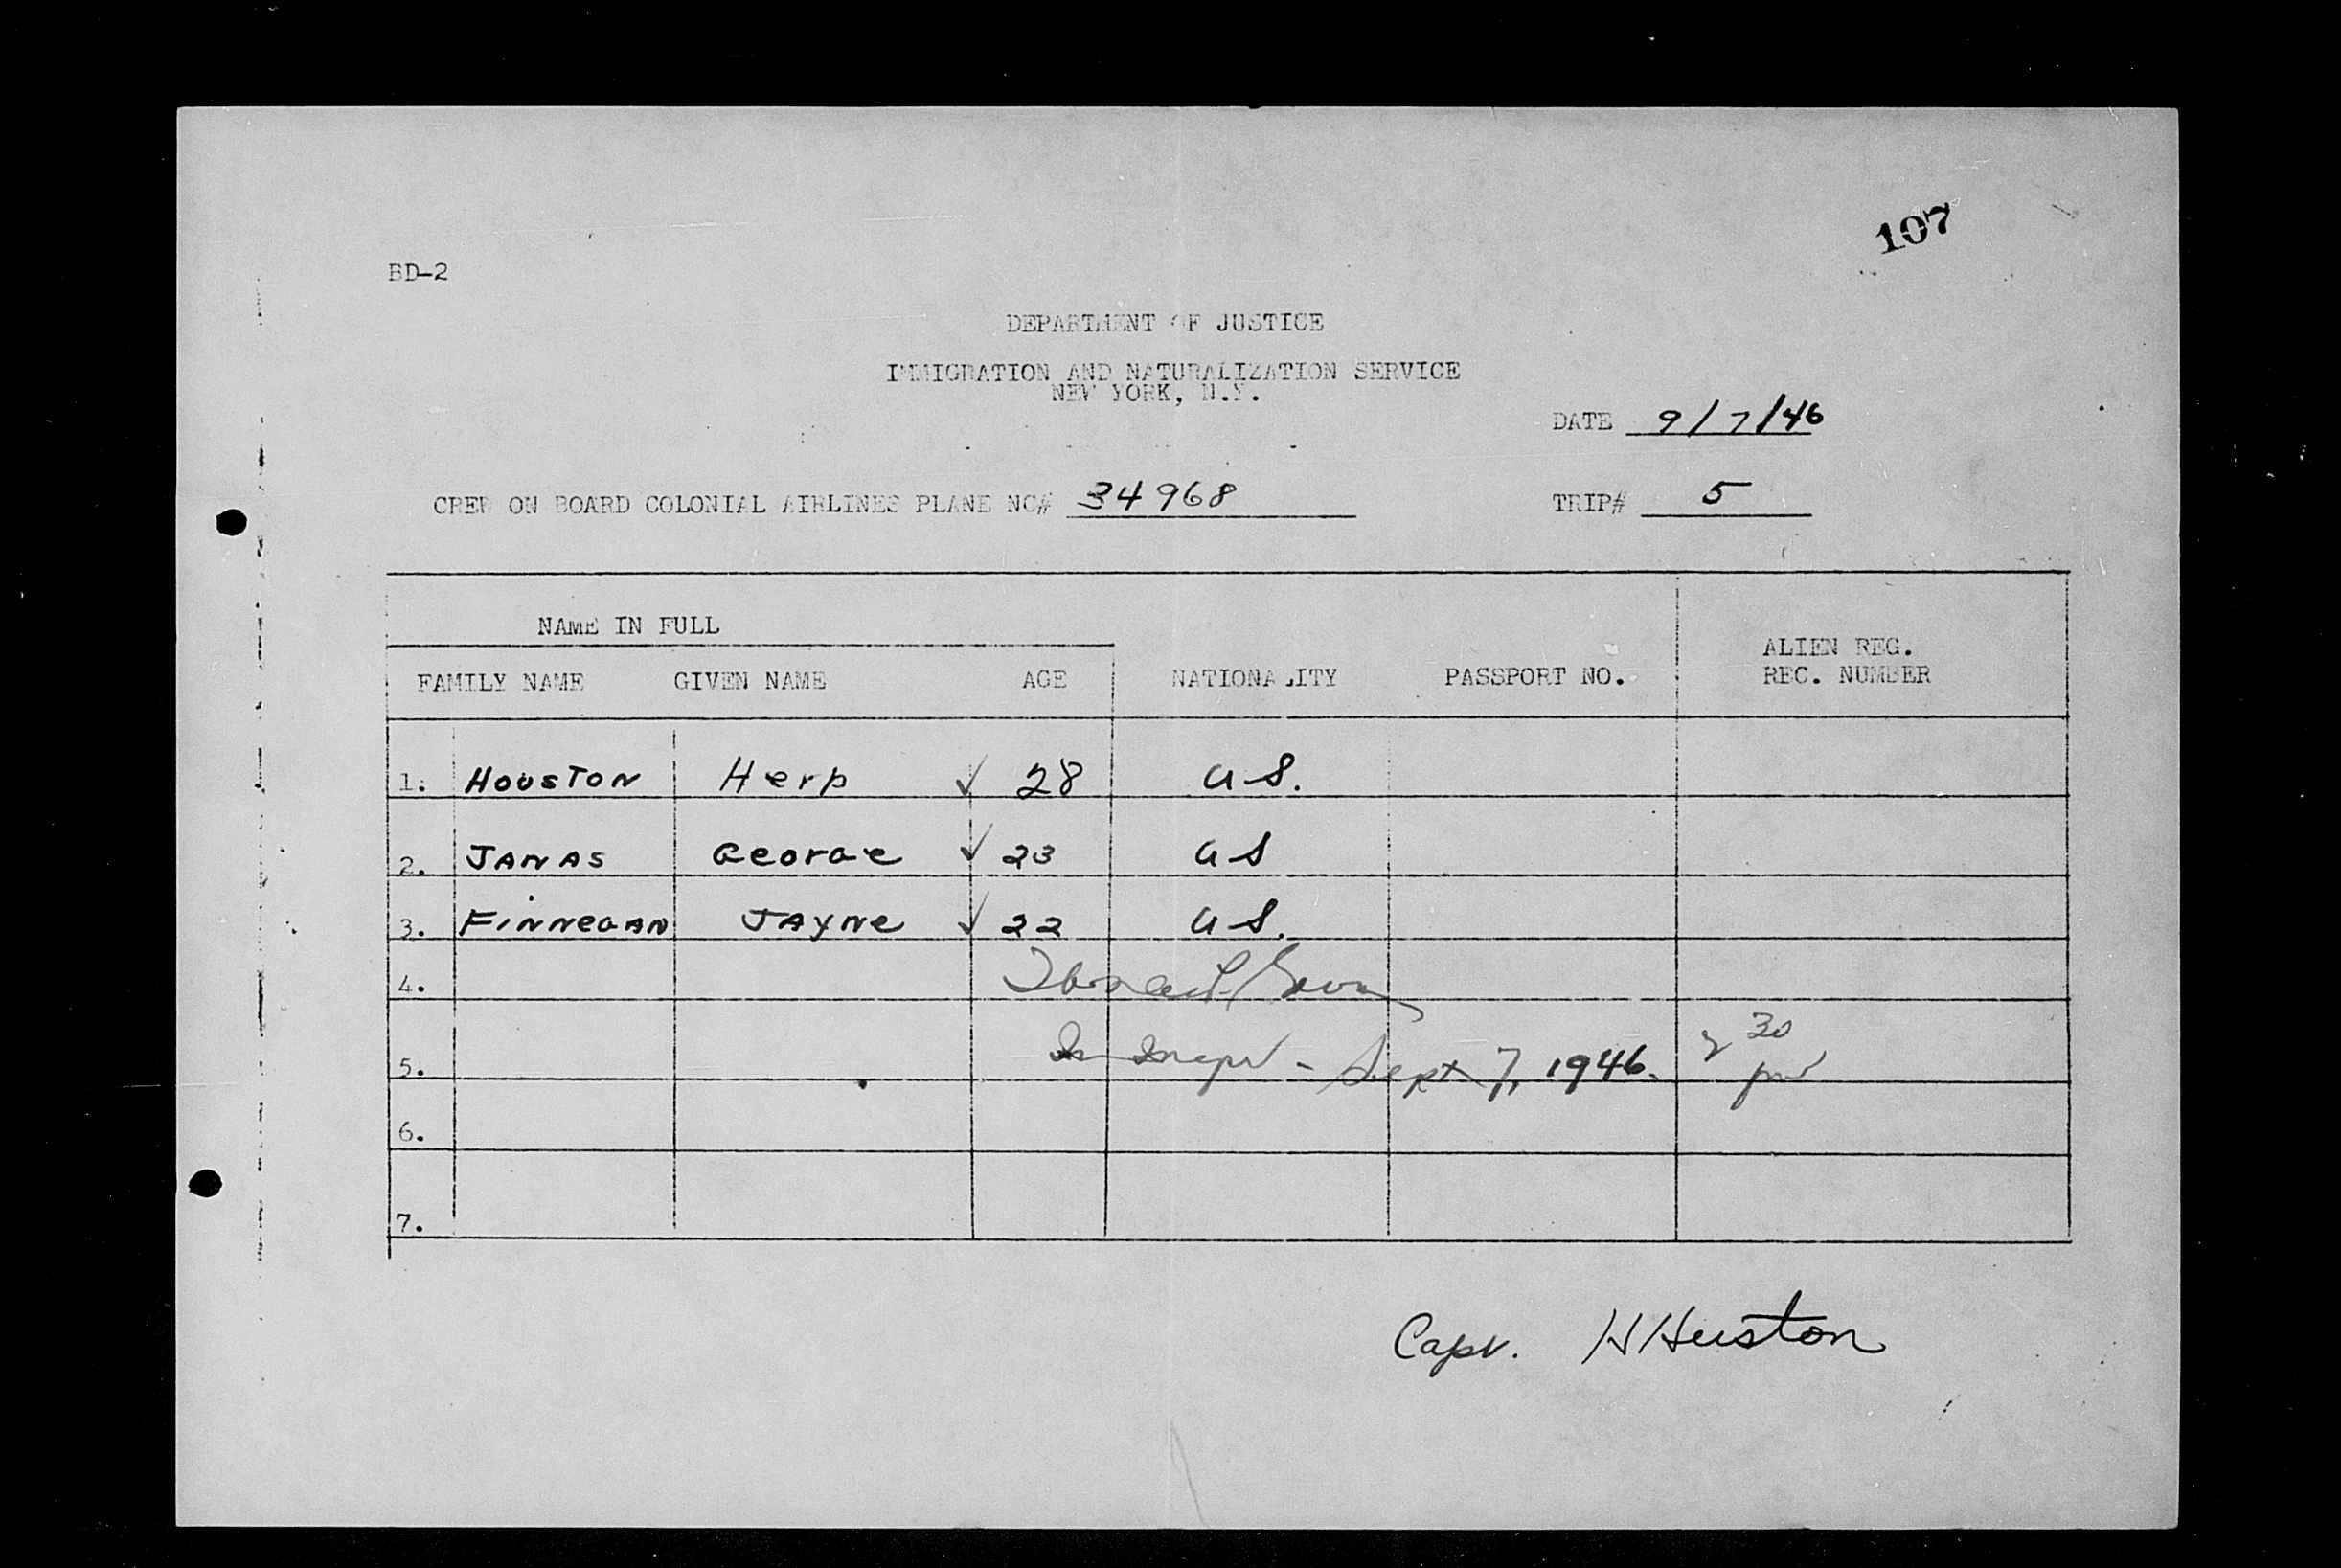 107
BD-2
DEPARTMENT OF JUSTICE
IMMIGRATION AND NATURALIZATION SERVICE
NEW YORK, N.Y.
DATE 9/7/46
CREW ON BOARD COLONIAL AIRLINES PLANE NC# 34968 TRIP# 5
NAME IN FULL
FAMILY NAME GIVEN NAME AGE NATIONALITY PASSPORT NO. ALIEN REG. REC. NUMBER
1. HOUSTON Herb ✓ 28 U.S.
2. JANAS George ✓ 23 US
3. FINNEGAN JAYNE ✓ 22 U.S.
4.
5. Sept 7, 1946. 30 pm
6.
7.
Capt. H Huston